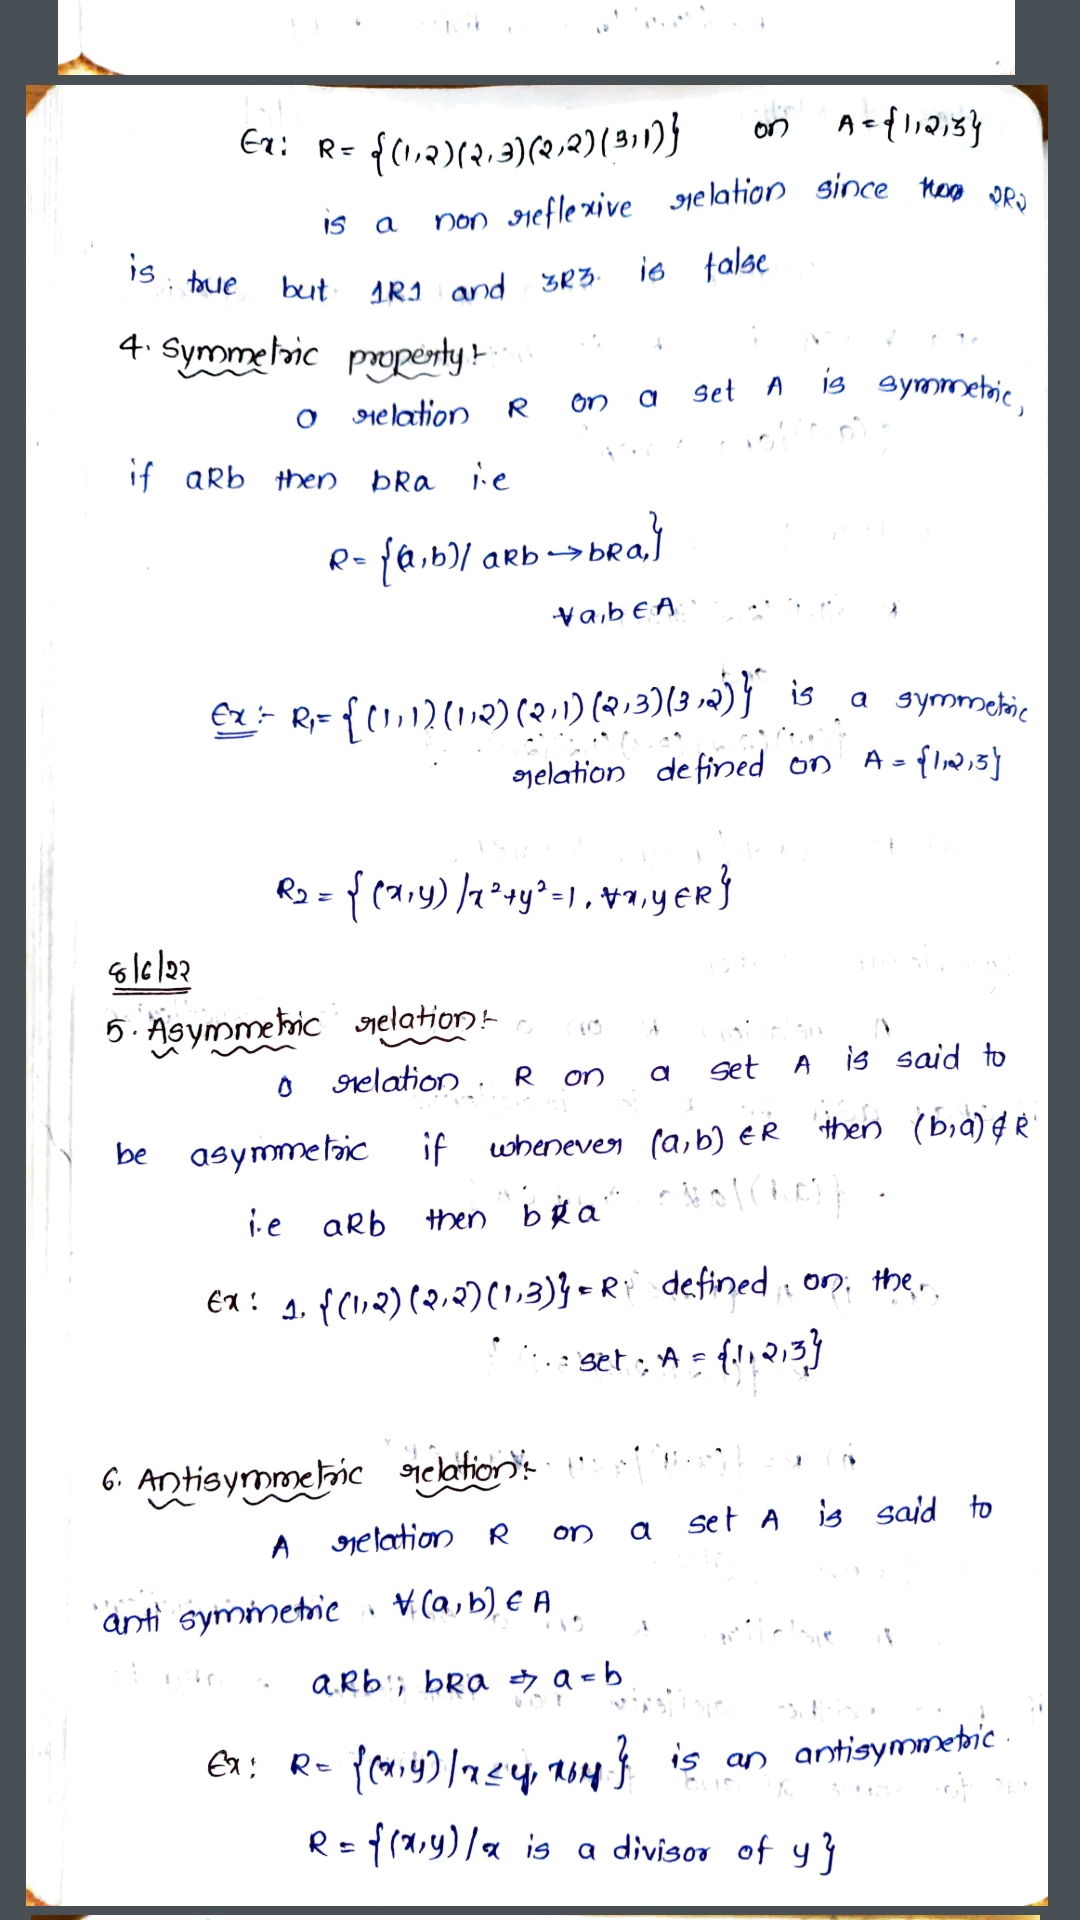 Ex: R = {(1,2)(2,3)(2,2)(3,1)} on A = {1,2,3}
is a non reflexive relation since 2R2
is true but 1R1 and 3R3 is false
4. Symmetric property:-
a relation R on a set A is symmetric,
if aRb then bRa i.e
R = {(a,b)/ aRb → bRa,}
∀a,b ∈ A
Ex :- R₁ = {(1,1)(1,2)(2,1)(2,3)(3,2)} is a symmetric
relation defined on A = {1,2,3}
R₂ = {(x,y)/x²+y²=1, ∀x,y ∈ R}
8/6/22
5. Asymmetric relation:-
a relation R on a set A is said to
be asymmetric if whenever (a,b) ∈ R then (b,a) ∉ R
i.e aRb then b R̸ a
Ex: 1. {(1,2)(2,2)(1,3)} = R defined on the
set A = {1,2,3}
6. Antisymmetric relation:-
A relation R on a set A is said to
anti symmetric ∀(a,b) ∈ A
aRb; bRa ⇒ a=b
Ex: R = {(x,y)/x≤y, } is an antisymmetric
R = {(x,y)/x is a divisor of y}